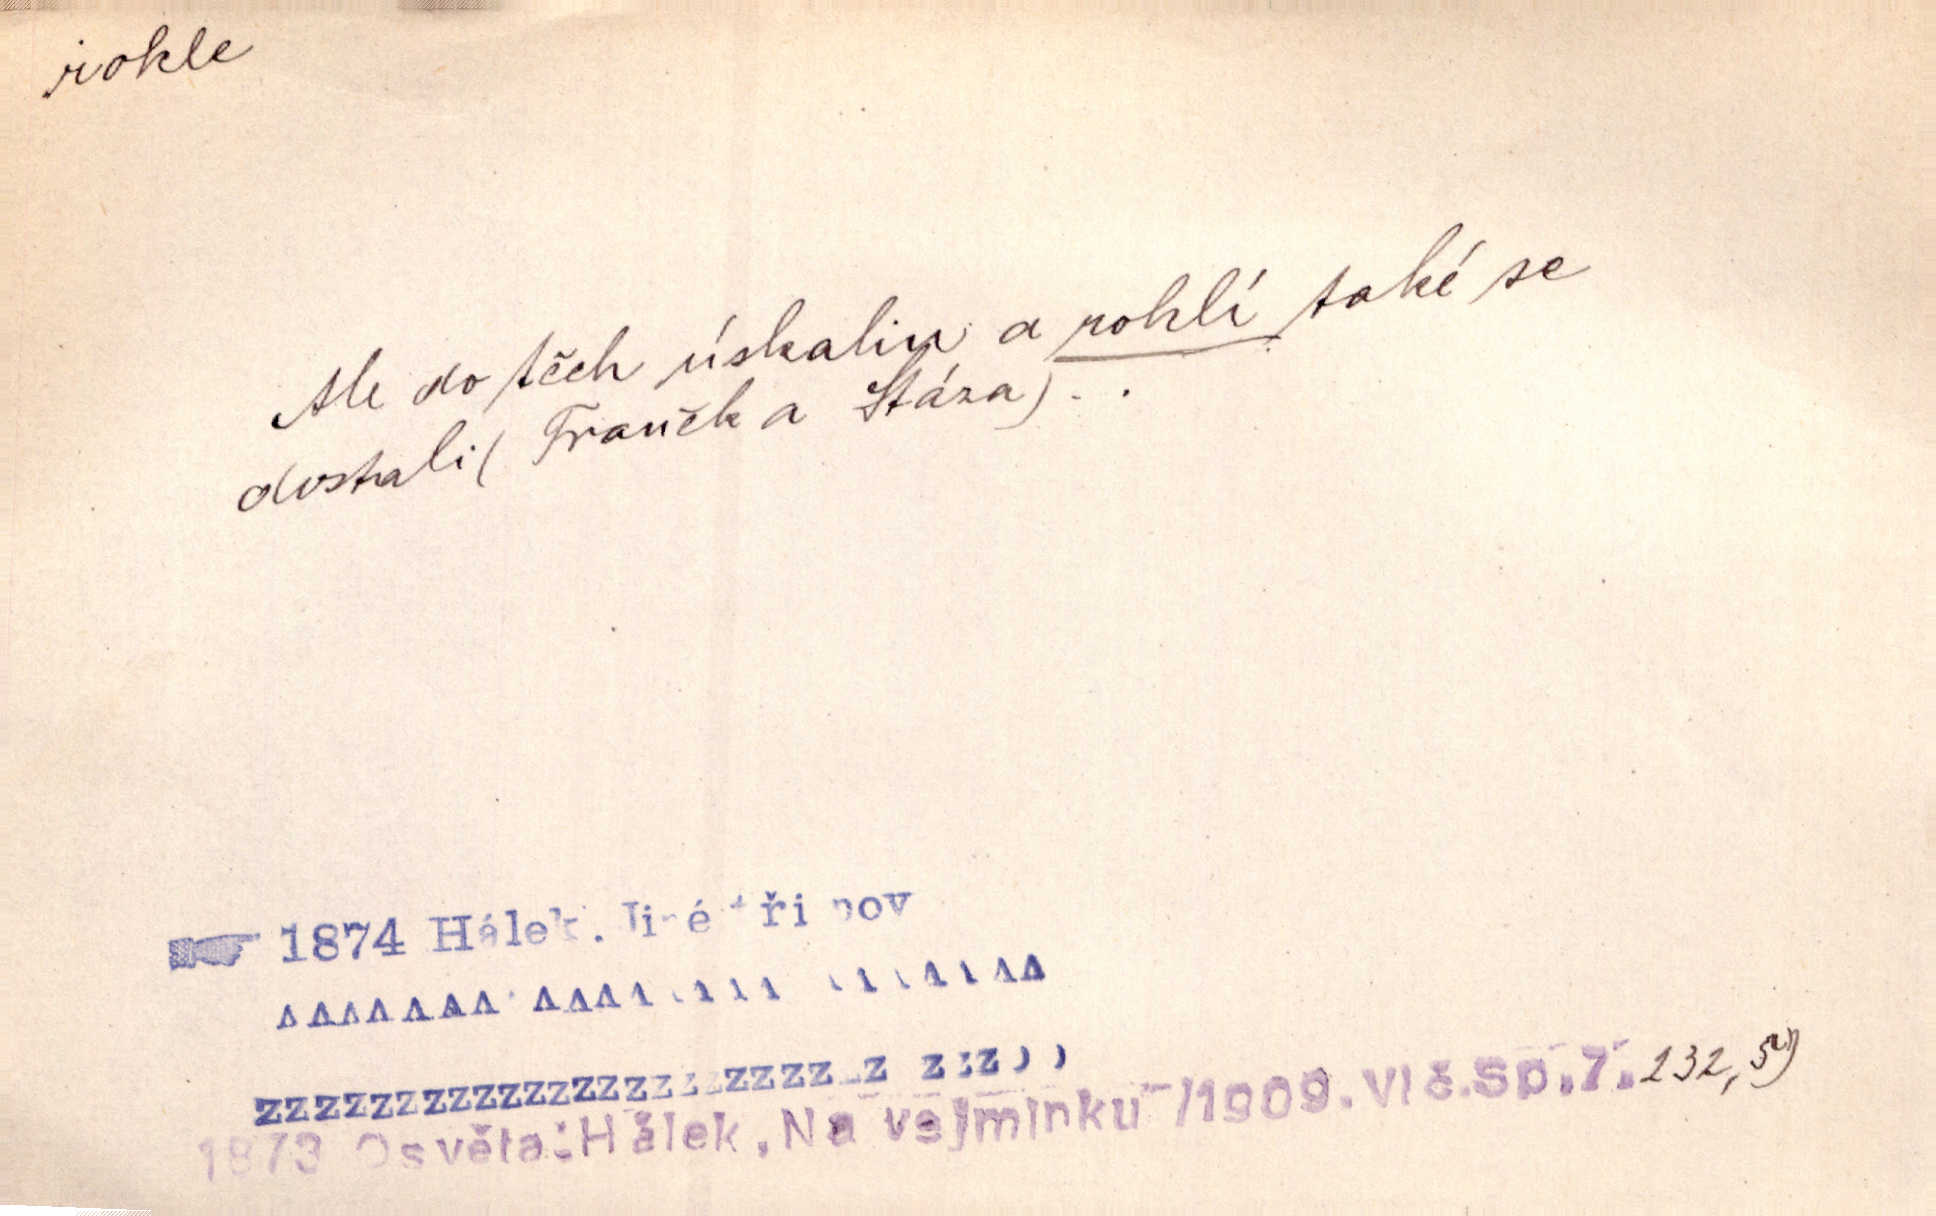 rokle
Ale do těch úskalin a roklí také se
dostali (Franěk a Stáza) . .
☞ 1874 Hálek. Jiné tři pov
zzzzzzzzzzzzzzzzzzzzzzz z zzz))
1873 Osvěta:Hálek,Na vejminku /1909.Vlč.Sp.7. 232,